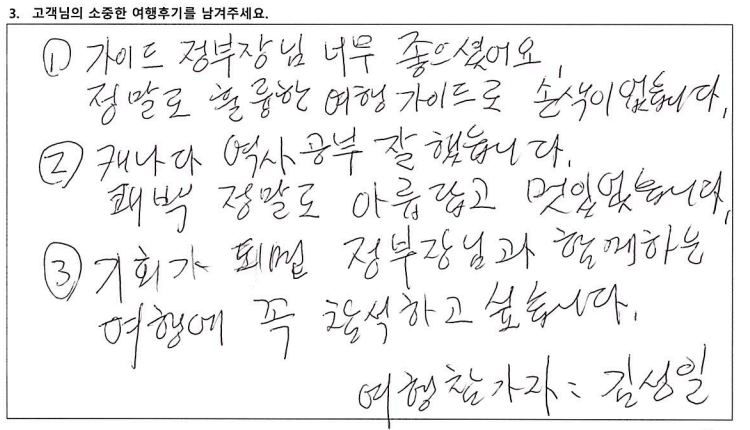 3. 고객님의 소중한 여행후기를 남겨주세요.
① 가이드 정부장님 너무 좋으셨어요.
정말로 훌륭한 여행 가이드로 손색이 없습니다.
② 캐나다 역사공부 잘 했습니다.
정말로 아름답고 멋있었습니다.
③ 기회가 되면 정부장님과 함께하는
여행에 꼭 참석하고 싶습니다.
여행참가자: 김성일